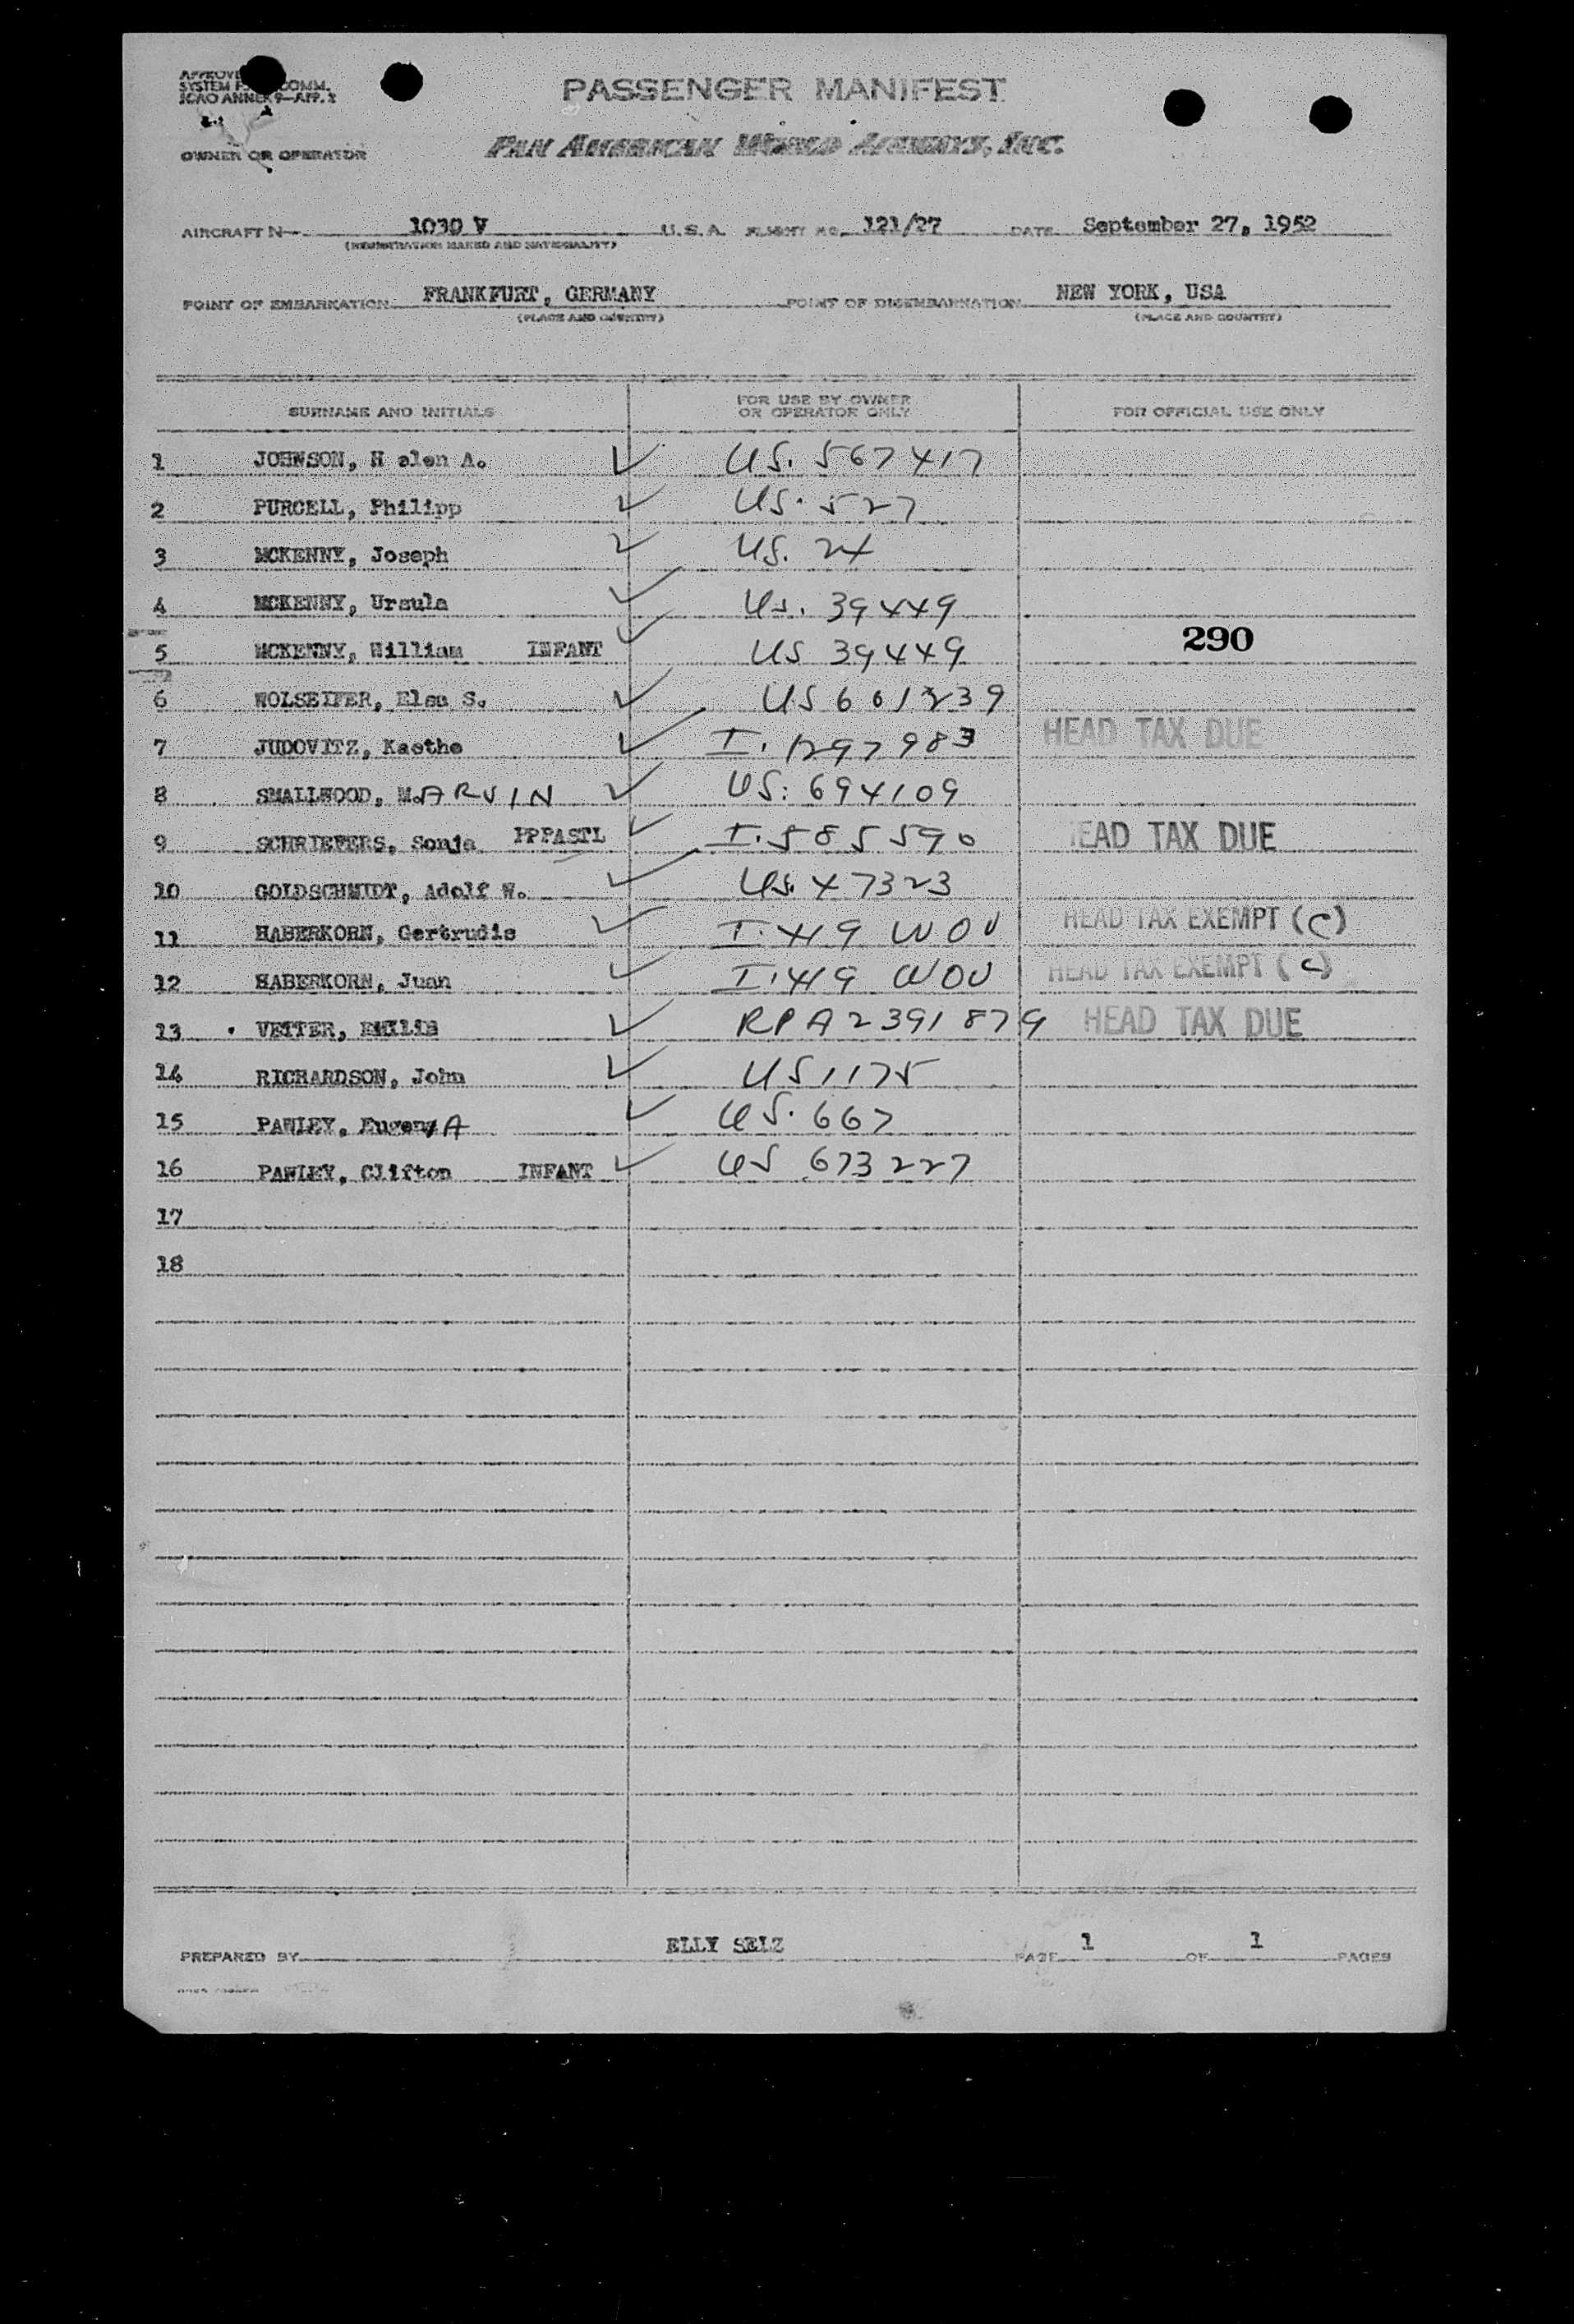 APPROVE
SYSTEM F COMM.
ICAO ANNEX 9—APP. 2
PASSENGER MANIFEST
OWNER OR OPERATOR PAN AMERICAN WORLD AIRWAYS, INC.
AIRCRAFT N 1030 V U.S.A. FLIGHT NO. 121/27 DATE September 27, 1952
(REGISTRATION MARKS AND NATIONALITY)
POINT OF EMBARKATION FRANKFURT, GERMANY POINT OF DISEMBARKATION NEW YORK, USA
(PLACE AND COUNTRY) (PLACE AND COUNTRY)
SURNAME AND INITIALS FOR USE BY OWNER OR OPERATOR ONLY FOR OFFICIAL USE ONLY
1 JOHNSON, H elen A. ✓ US. 567417
2 PURCELL, Philipp ✓ US. 527
3 MCKENNY, Joseph ✓ US. 24
4 MCKENNY, Ursula ✓ US. 39449
5 MCKENNY, William INFANT ✓ US 39449 290
6 WOLSEIFER, Elsa S. ✓ US 601239
7 JUDOVITZ, Kaethe ✓ I. 1297983 HEAD TAX DUE
8 SMALLWOOD, M.ARVIN ✓ US: 694109
9 SCHRIEFERS, Sonja PPPASTL ✓ I. 585590 HEAD TAX DUE
10 GOLDSCHMIDT, Adolf W. ✓ US. 47323
11 HABERKORN, Gertrudis ✓ I. 419 WOV HEAD TAX EXEMPT (C)
12 HABERKORN, Juan ✓ I. 419 WOV HEAD TAX EXEMPT (C)
13 VETTER, EMILIE ✓ RP A2391879 HEAD TAX DUE
14 RICHARDSON, John ✓ US 1175
15 PAWLEY, Eugen/A ✓ US. 667
16 PAWLEY, Clifton INFANT ✓ US 673227
17
18
PREPARED BY ELLY SELZ PAGE 1 OF 1 PAGES